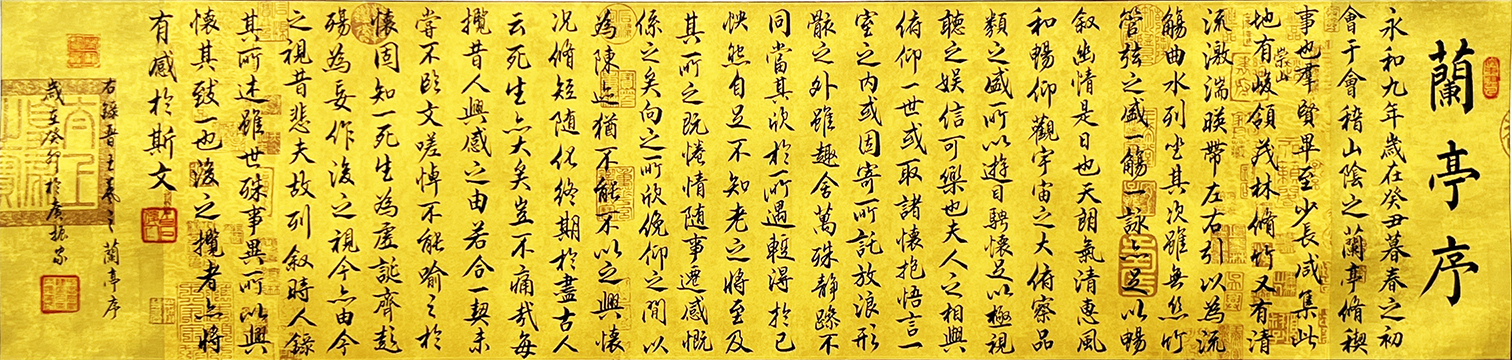 蘭亭序
永和九年歲在癸丑暮春之初
會于會稽山陰之蘭亭脩稧
事也羣賢畢至少長咸集此
地有崇山峻領茂林脩竹又有清
流激湍暎帶左右引以為流
觴曲水列坐其次雖無絲竹
管弦之盛一觴一詠亦足以暢
叙幽情是日也天朗氣清惠風
和暢仰觀宇宙之大俯察品
類之盛所以遊目騁懷足以極視
聽之娛信可樂也夫人之相與
俯仰一世或取諸懷抱悟言一
室之內或因寄所託放浪形
骸之外雖趣舍萬殊静躁不
同當其欣於所遇輕得於己
怏然自足不知老之將至及
其所之既惓情隨事遷感慨
係之矣向之所欣俛仰之間以
為陳迹猶不能不以之興懷
况脩短随化終期於盡古人
云死生亦大矣豈不痛哉每
攬昔人興感之由若合一契未
甞不臨文嗟悼不能喻之於
懷固知一死生為虛誕齊彭
殤為妄作後之視今亦由今
之視昔悲夫故列叙時人錄
其所述雖世殊事異所以興
懷其致一也後之攬者亦將
有感於斯文
右錄晋王羲之蘭亭序
歲在癸卯於廣振